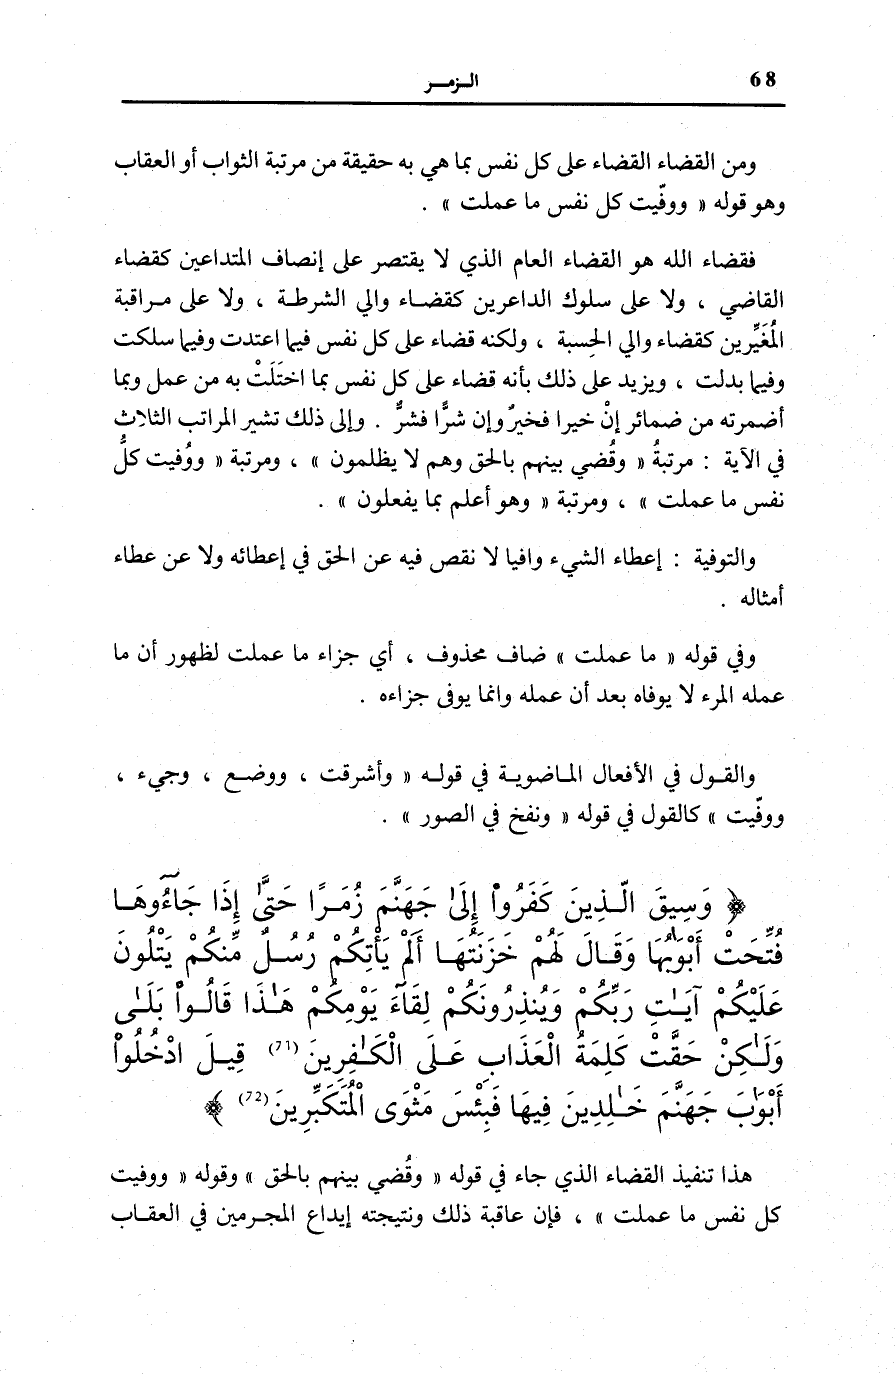 68 الـزمـر
ومن القضاء القضاء على كل نفس بما هي به حقيقة من مرتبة الثواب أو العقاب
وهو قوله « ووفّيت كل نفس ما عملت » .
فقضاء الله هو القضاء العام الذي لا يقتصر على إنصاف المتداعين كقضاء
القاضي ، ولا على سلوك الداعرين كقضاء والي الشرطة ، ولا على مراقبة
المُغَيِّرين كقضاء والي الحِسبة ، ولكنه قضاء على كل نفس فيما اعتدت وفيما سلكت
وفيما بدلت ، ويزيد على ذلك بأنه قضاء على كل نفس بما اختَلَتْ به من عمل وبما
أضمرته من ضمائر إنْ خيرا فخيرٌ وإن شرًّا فشرٌّ . وإلى ذلك تشير المراتب الثلاث
في الآية : مرتبةُ « وقُضي بينهم بالحق وهم لا يظلمون » ، ومرتبة « ووُفيت كلُّ
نفس ما عملت » ، ومرتبة « وهو أعلم بما يفعلون » .
والتوفية : إعطاء الشيء وافيا لا نقص فيه عن الحق في إعطائه ولا عن عطاء
أمثاله .
وفي قوله « ما عملت » ضاف محذوف ، أي جزاء ما عملت لظهور أن ما
عمله المرء لا يوفاه بعد أن عمله وانما يوفى جزاءه .
والقول في الأفعال الماضوية في قوله « وأشرقت ، ووضع ، وجيء ،
ووفّيت » كالقول في قوله « ونفخ في الصور » .
﴿ وَسِيقَ الَّذِينَ كَفَرُواْ إِلَىٰ جَهَنَّمَ زُمَرًا حَتَّىٰ إِذَا جَآءُوهَا
فُتِّحَتْ أَبْوَٰبُهَا وَقَالَ لَهُمْ خَزَنَتُهَا أَلَمْ يَأْتِكُمْ رُسُلٌ مِّنكُمْ يَتْلُونَ
عَلَيْكُمْ ءَايَـٰتِ رَبِّكُمْ وَيُنذِرُونَكُمْ لِقَآءَ يَوْمِكُمْ هَـٰذَا قَالُواْ بَلَىٰ
وَلَـٰكِنْ حَقَّتْ كَلِمَةُ الْعَذَابِ عَلَى الْكَـٰفِرِينَ (71) قِيلَ ادْخُلُواْ
أَبْوَٰبَ جَهَنَّمَ خَـٰلِدِينَ فِيهَا فَبِئْسَ مَثْوَى الْمُتَكَبِّرِينَ (72) ﴾
هذا تنفيذ القضاء الذي جاء في قوله « وقُضي بينهم بالحق » وقوله « ووفيت
كل نفس ما عملت » ، فإن عاقبة ذلك ونتيجته إيداع المجرمين في العقاب